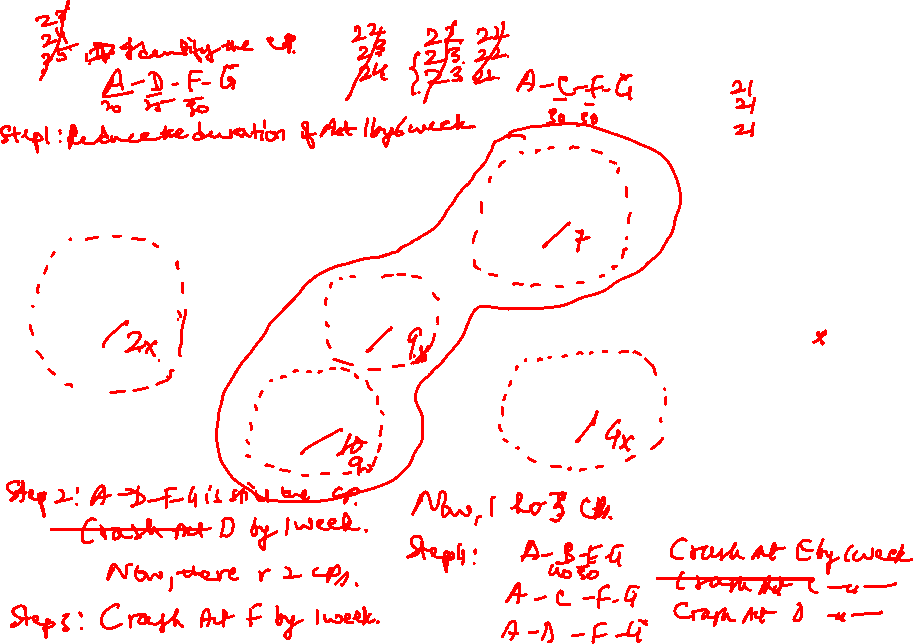 27
24
25
Identify the CP.
A-D-F-G
20 25 30
22 27 24
23 23 22
24 23 22
A-C-F-G
30 30
21
21
21
Step1: Reduce the duration of Act 1 by 1 week
7
2x
9x
10
9x
4x
x
Step 2: A-D-F-G is still the CP.
Crash Act D by 1 week.
Now, there r 2 CPs
Step 3: Crash Act F by 1 week.
Now, I ho 3 CPs.
Step 4: A-B-E-G
40 30
A-C-F-G
A-D-F-G
Crash Act E by 1 week
Crash Act C -"-
Crash Act D -"-